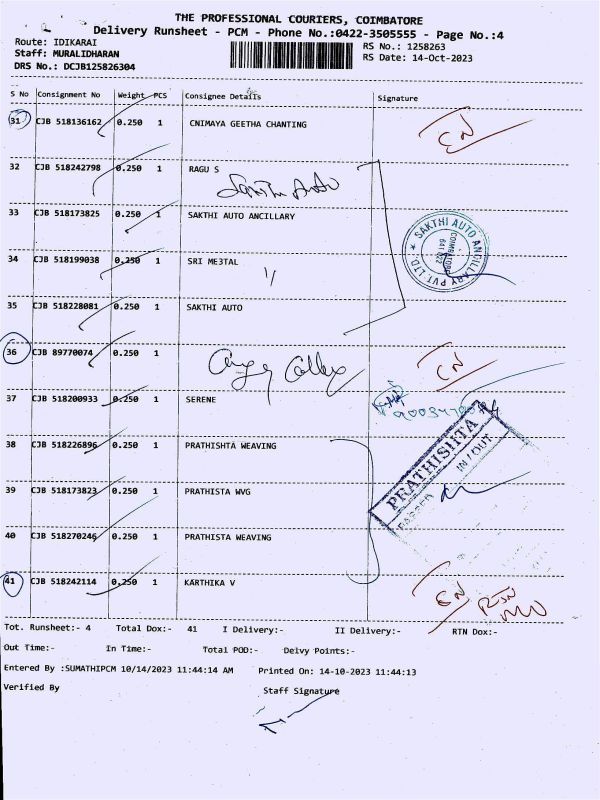 THE PROFESSIONAL COURIERS, COIMBATORE
Delivery Runsheet - PCM - Phone No.:0422-3505555 - Page No.:4
Route: IDIKARAI
RS No.: 1258263
Staff: MURALIDHARAN
RS Date: 14-Oct-2023
DRS No.: DCJB125826304
S No Consignment No Weight PCS Consignee Details Signature
31 CJB 518136162 0.250 1 CNIMAYA GEETHA CHANTING EN
32 CJB 518242798 0.250 1 RAGU S
Sakthi Auto
33 CJB 518173825 0.250 1 SAKTHI AUTO ANCILLARY
SAKTHI AUTO ANCILLARY PVT LTD. ★
COIMBATORE
34 CJB 518199038 0.250 1 SRI ME3TAL
35 CJB 518228081 0.250 1 SAKTHI AUTO
36 CJB 89770074 0.250 1 EN
37 CJB 518200933 0.250 1 SERENE
38 CJB 518226896 0.250 1 PRATHISHTA WEAVING
PRATHISHTA
IN / OUT
39 CJB 518173823 0.250 1 PRATHISTA WVG
40 CJB 518270246 0.250 1 PRATHISTA WEAVING
41 CJB 518242114 0.250 1 KARTHIKA V EN
Tot. Runsheet:- 4 Total Dox:- 41 I Delivery:- II Delivery:- RTN Dox:-
Out Time:- In Time:- Total POD:- Delvy Points:-
Entered By :SUMATHIPCM 10/14/2023 11:44:14 AM Printed On: 14-10-2023 11:44:13
Verified By Staff Signature